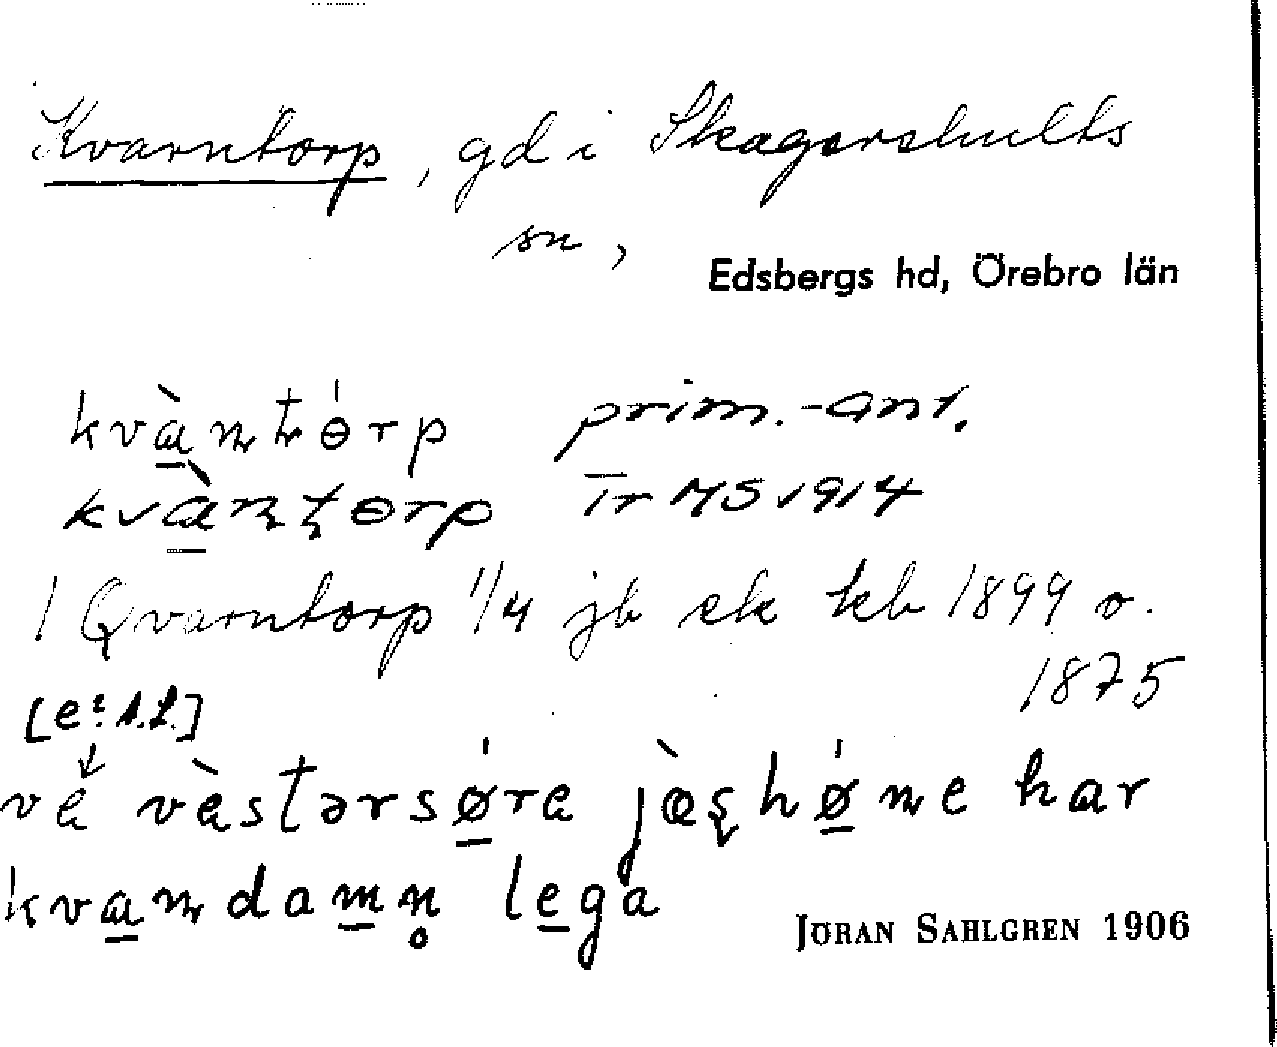 Kvarntorp, gd i Skagershults
sn,
Edsbergs hd, Örebro län
kvàɳʈórp prim.-ant.
kvàɳʈɵrp Tr MS 1914
1 Qvarntorp 1/4 jb sk kb 1899 o.
1875
[e: A.L.]
va vàstərsǿra jæʂhǿɳe har
kvaɳdamn̥ lega
JÖRAN SAHLGREN 1906